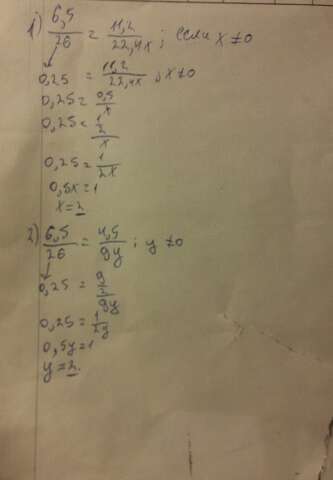 1) 6,5/26 = 11,2/22,4x ; если x ≠ 0
0,25 = 11,2/22,4x ; x ≠ 0
0,25 = 0,5/x
0,25 = (1/2)/x
0,25 = 1/2x
0,5x = 1
x = 2
2) 6,5/26 = 4,5/9y ; y ≠ 0
0,25 = (9/2)/9y
0,25 = 1/2y
0,5y = 1
y = 2.